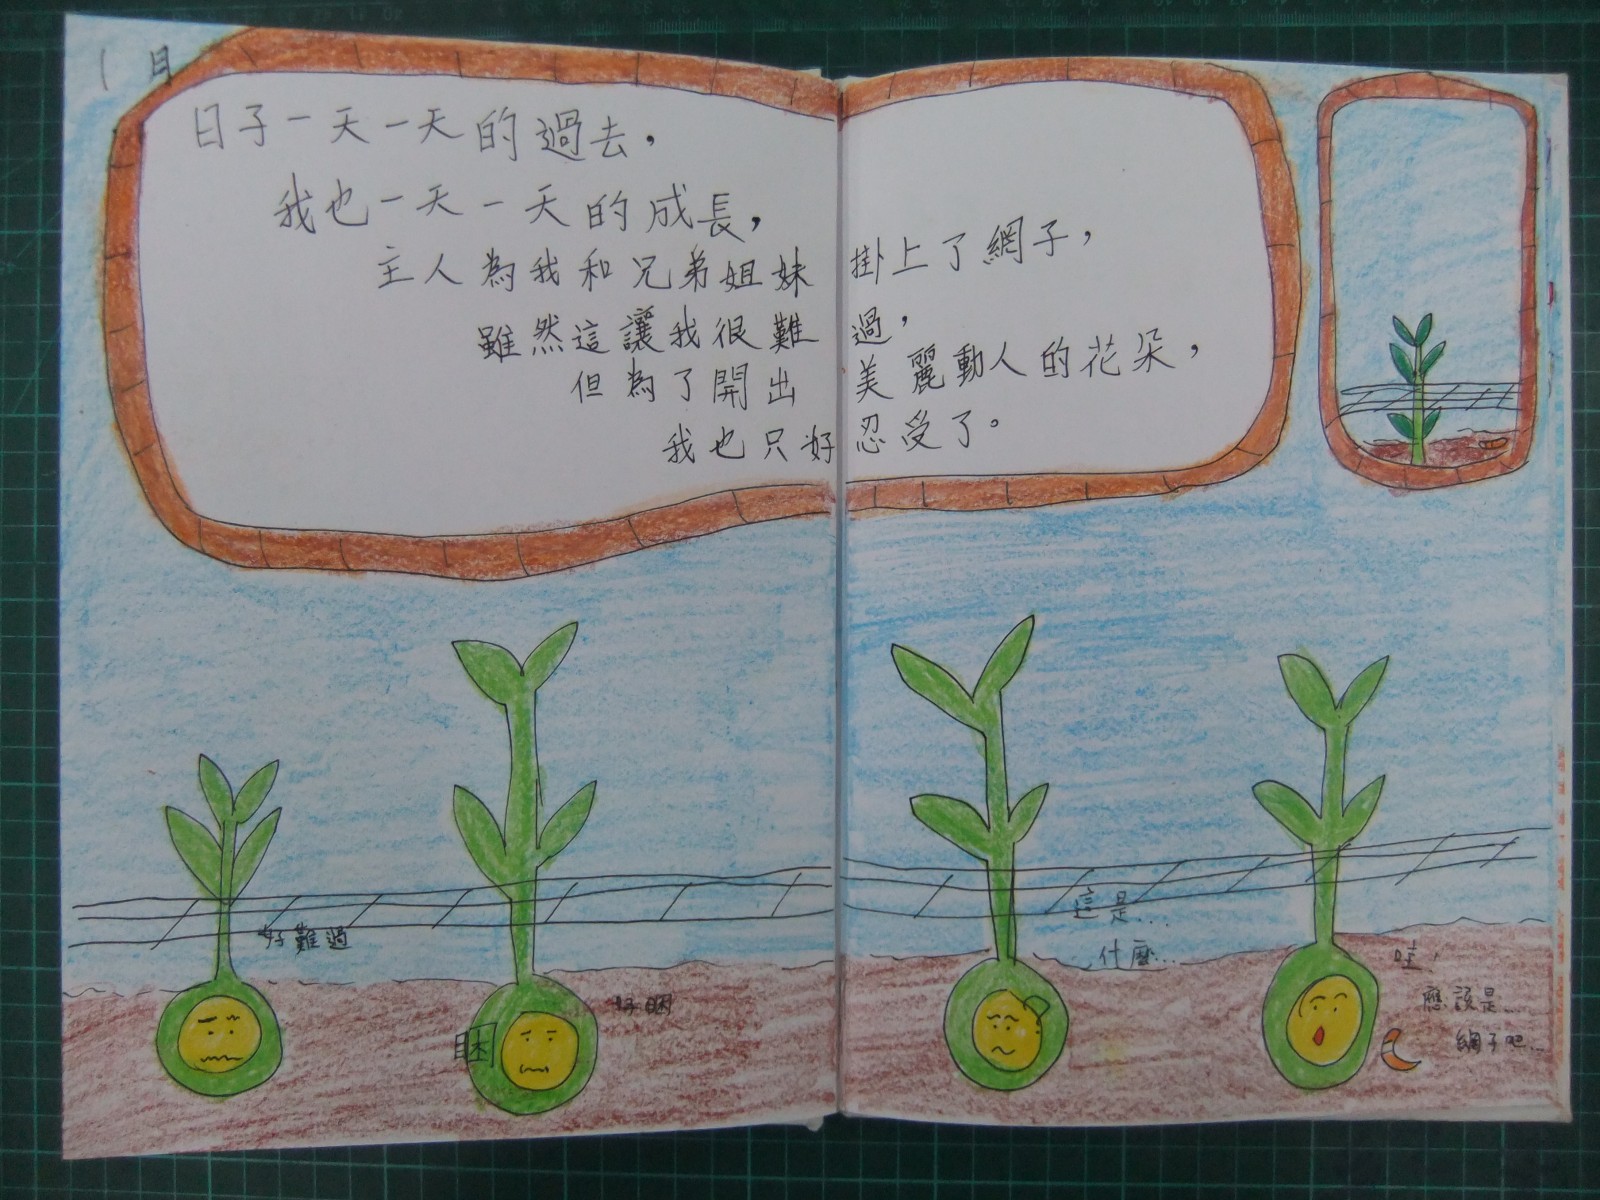 1月
日子一天一天的過去，
我也一天一天的成長，
主人為我和兄弟姐妹掛上了網子，
雖然這讓我很難過，
但為了開出美麗動人的花朵，
我也只好忍受了。
好難過
好睏
這是…
什麼…
哇，
應該是…
網子吧…